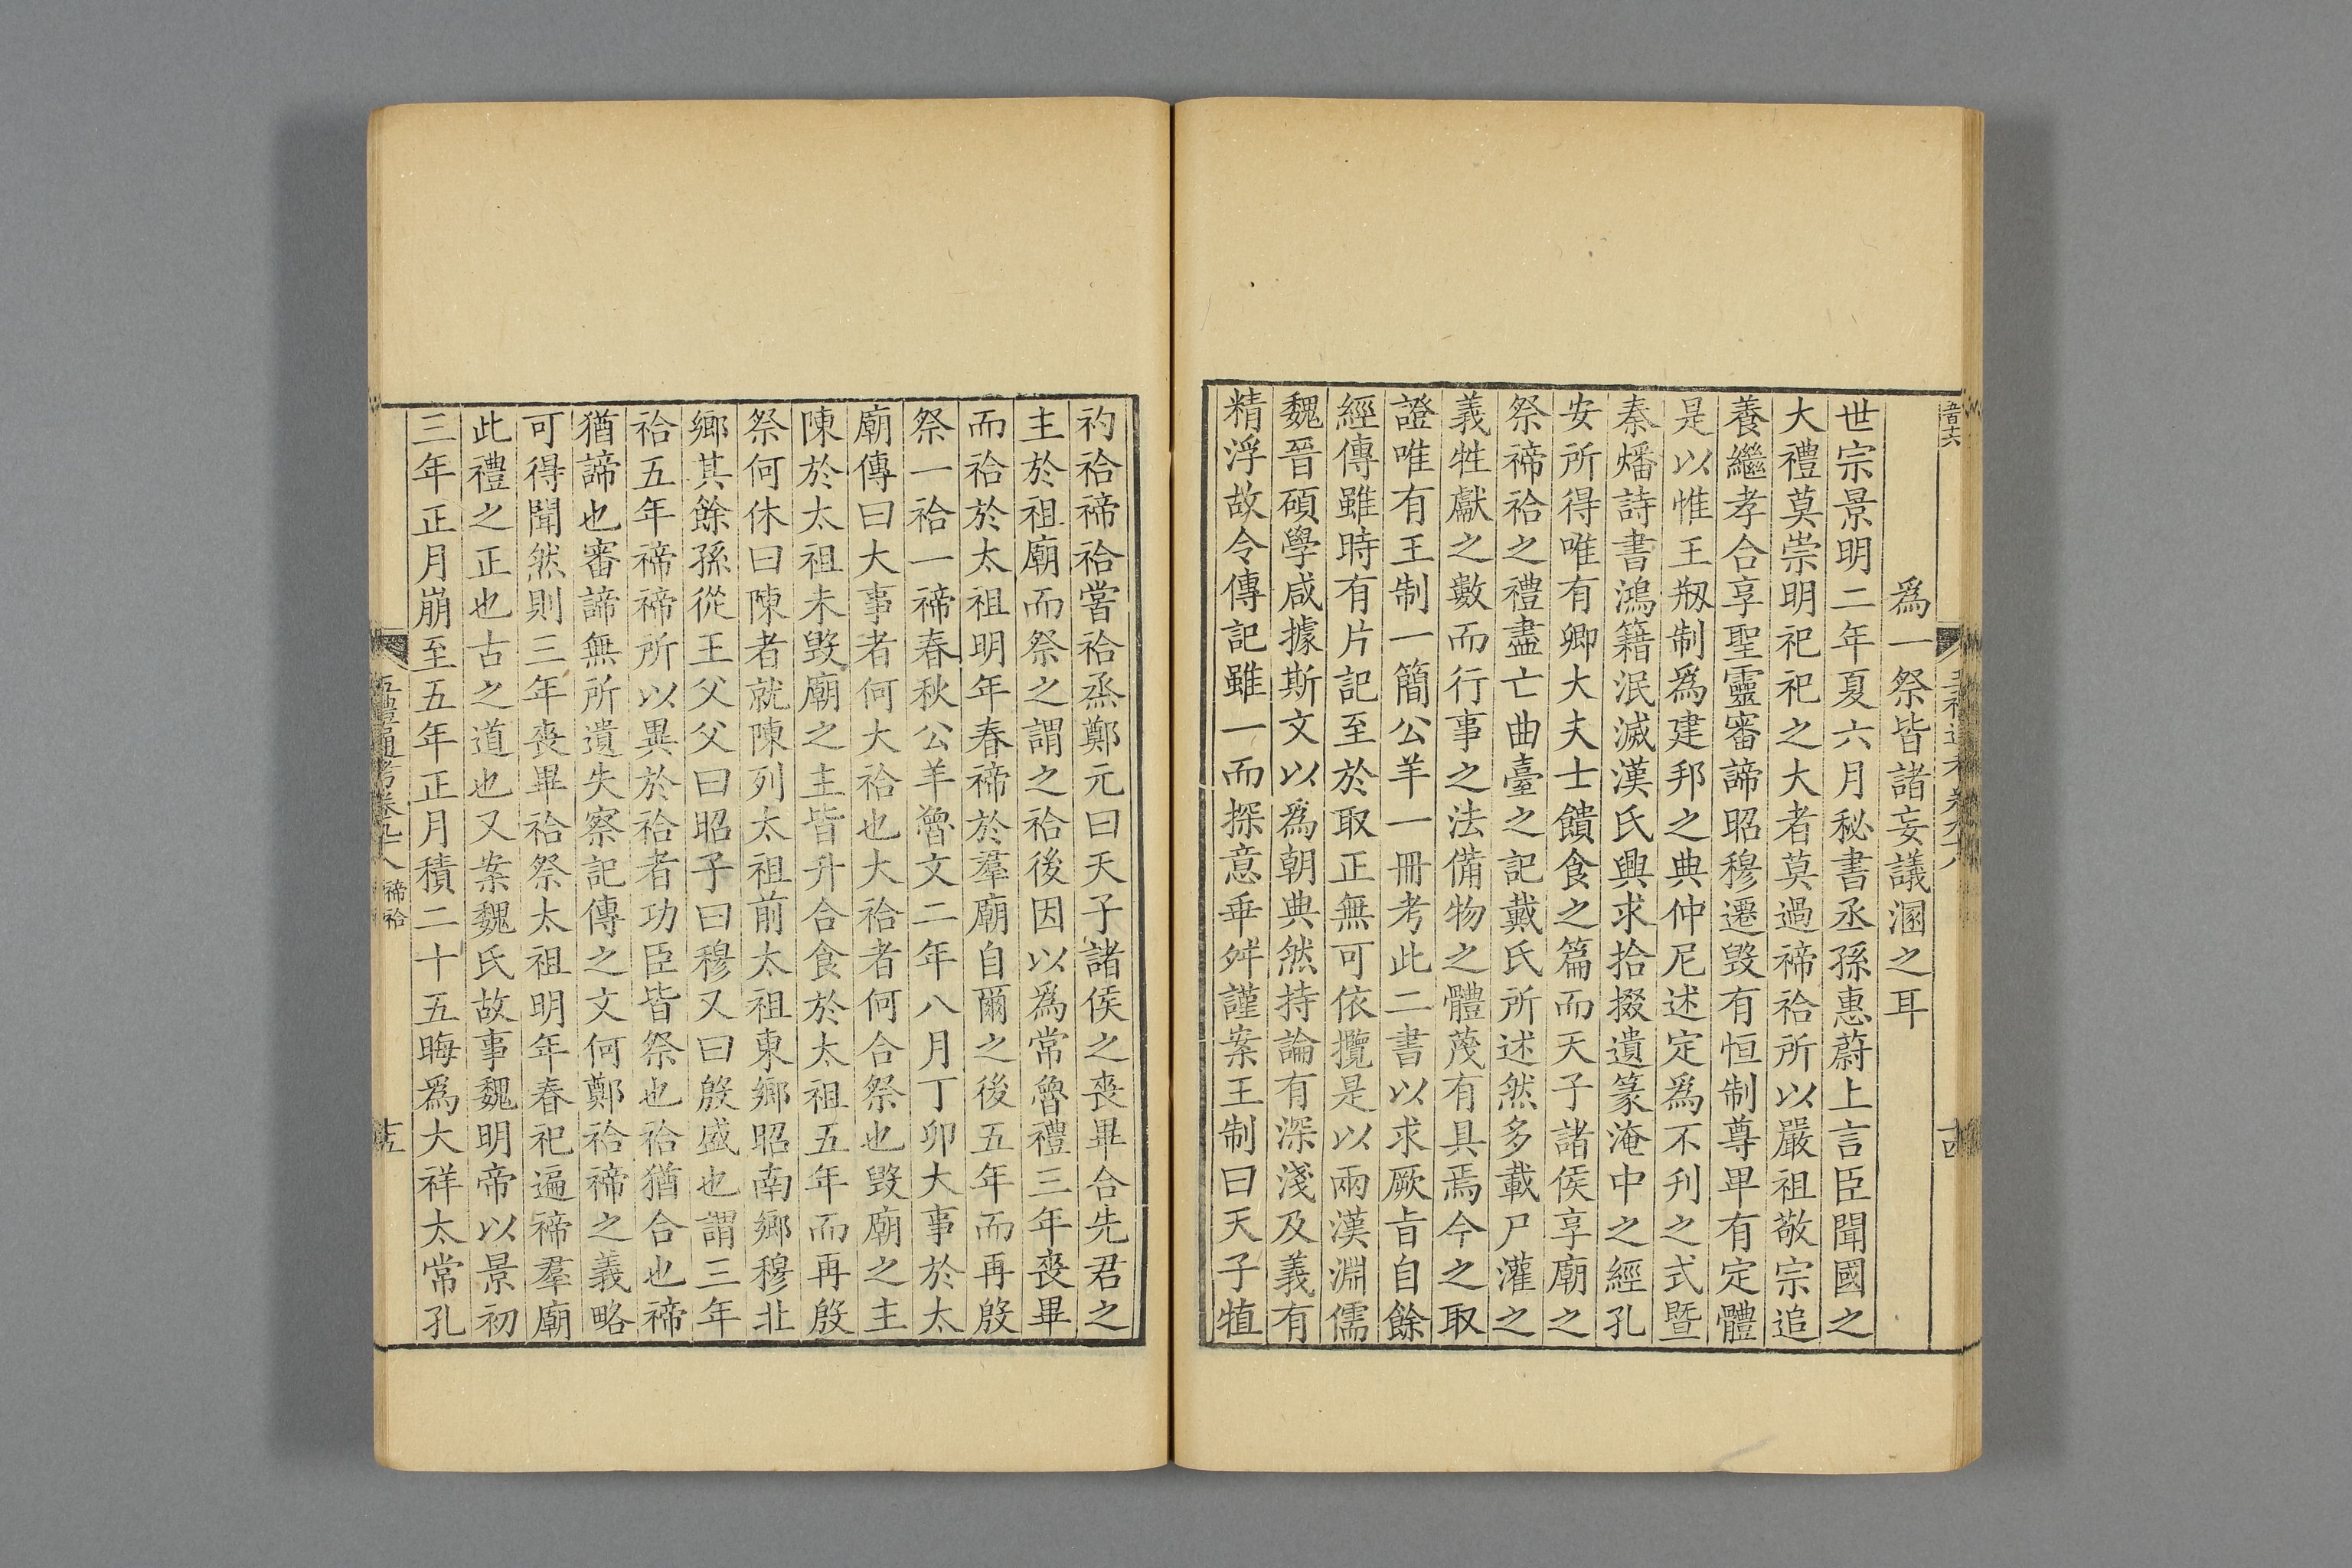 爲一祭皆諸妄議溷之耳
世宗景明二年夏六月秘書丞孫惠蔚上言臣聞國之
大禮莫崇明祀祀之大者莫過禘祫所以嚴祖敬宗追
養繼孝合享聖靈審諦昭穆遷毀有恒制尊卑有定體
是以惟王剏制爲建邦之典仲尼述定爲不刋之式暨
秦燔詩書鴻籍泯滅漢氏興求拾掇遺篆淹中之經孔
安所得唯有卿大夫士饋食之篇而天子諸侯享廟之
祭禘祫之禮盡亡曲臺之記戴氏所述然多載尸灌之
義牲獻之數而行事之法備物之體蔑有具焉今之取
證唯有王制一簡公羊一冊考此二書以求厥旨自餘
經傳雖時有片記至於取正無可依攬是以兩漢淵儒
魏晉碩學咸據斯文以爲朝典然持論有深淺及義有
精浮故令傳記雖一而探意乖舛謹案王制曰天子犆
礿祫禘祫嘗祫烝鄭元曰天子諸侯之喪畢合先君之
主於祖廟而祭之謂之祫後因以爲常魯禮三年喪畢
而祫於太祖明年春禘於羣廟自爾之後五年而再殷
祭一祫一禘春秋公羊魯文二年八月丁卯大事於太
廟傳曰大事者何大祫也大祫者何合祭也毀廟之主
陳於太祖未毀廟之主皆升合食於太祖五年而再殷
祭何休曰陳者就陳列太祖前太祖東鄉昭南鄉穆北
鄉其餘孫從王父父曰昭子曰穆又曰殷盛也謂三年
祫五年禘禘所以異於祫者功臣皆祭也祫猶合也禘
猶諦也審諦無所遺失察記傳之文何鄭祫禘之義略
可得聞然則三年喪畢祫祭太祖明年春祀遍禘羣廟
此禮之正也古之道也又案魏氏故事魏明帝以景初
三年正月崩至五年正月積二十五晦爲大祥太常孔
五禮通考卷九十八 禘祫
十五